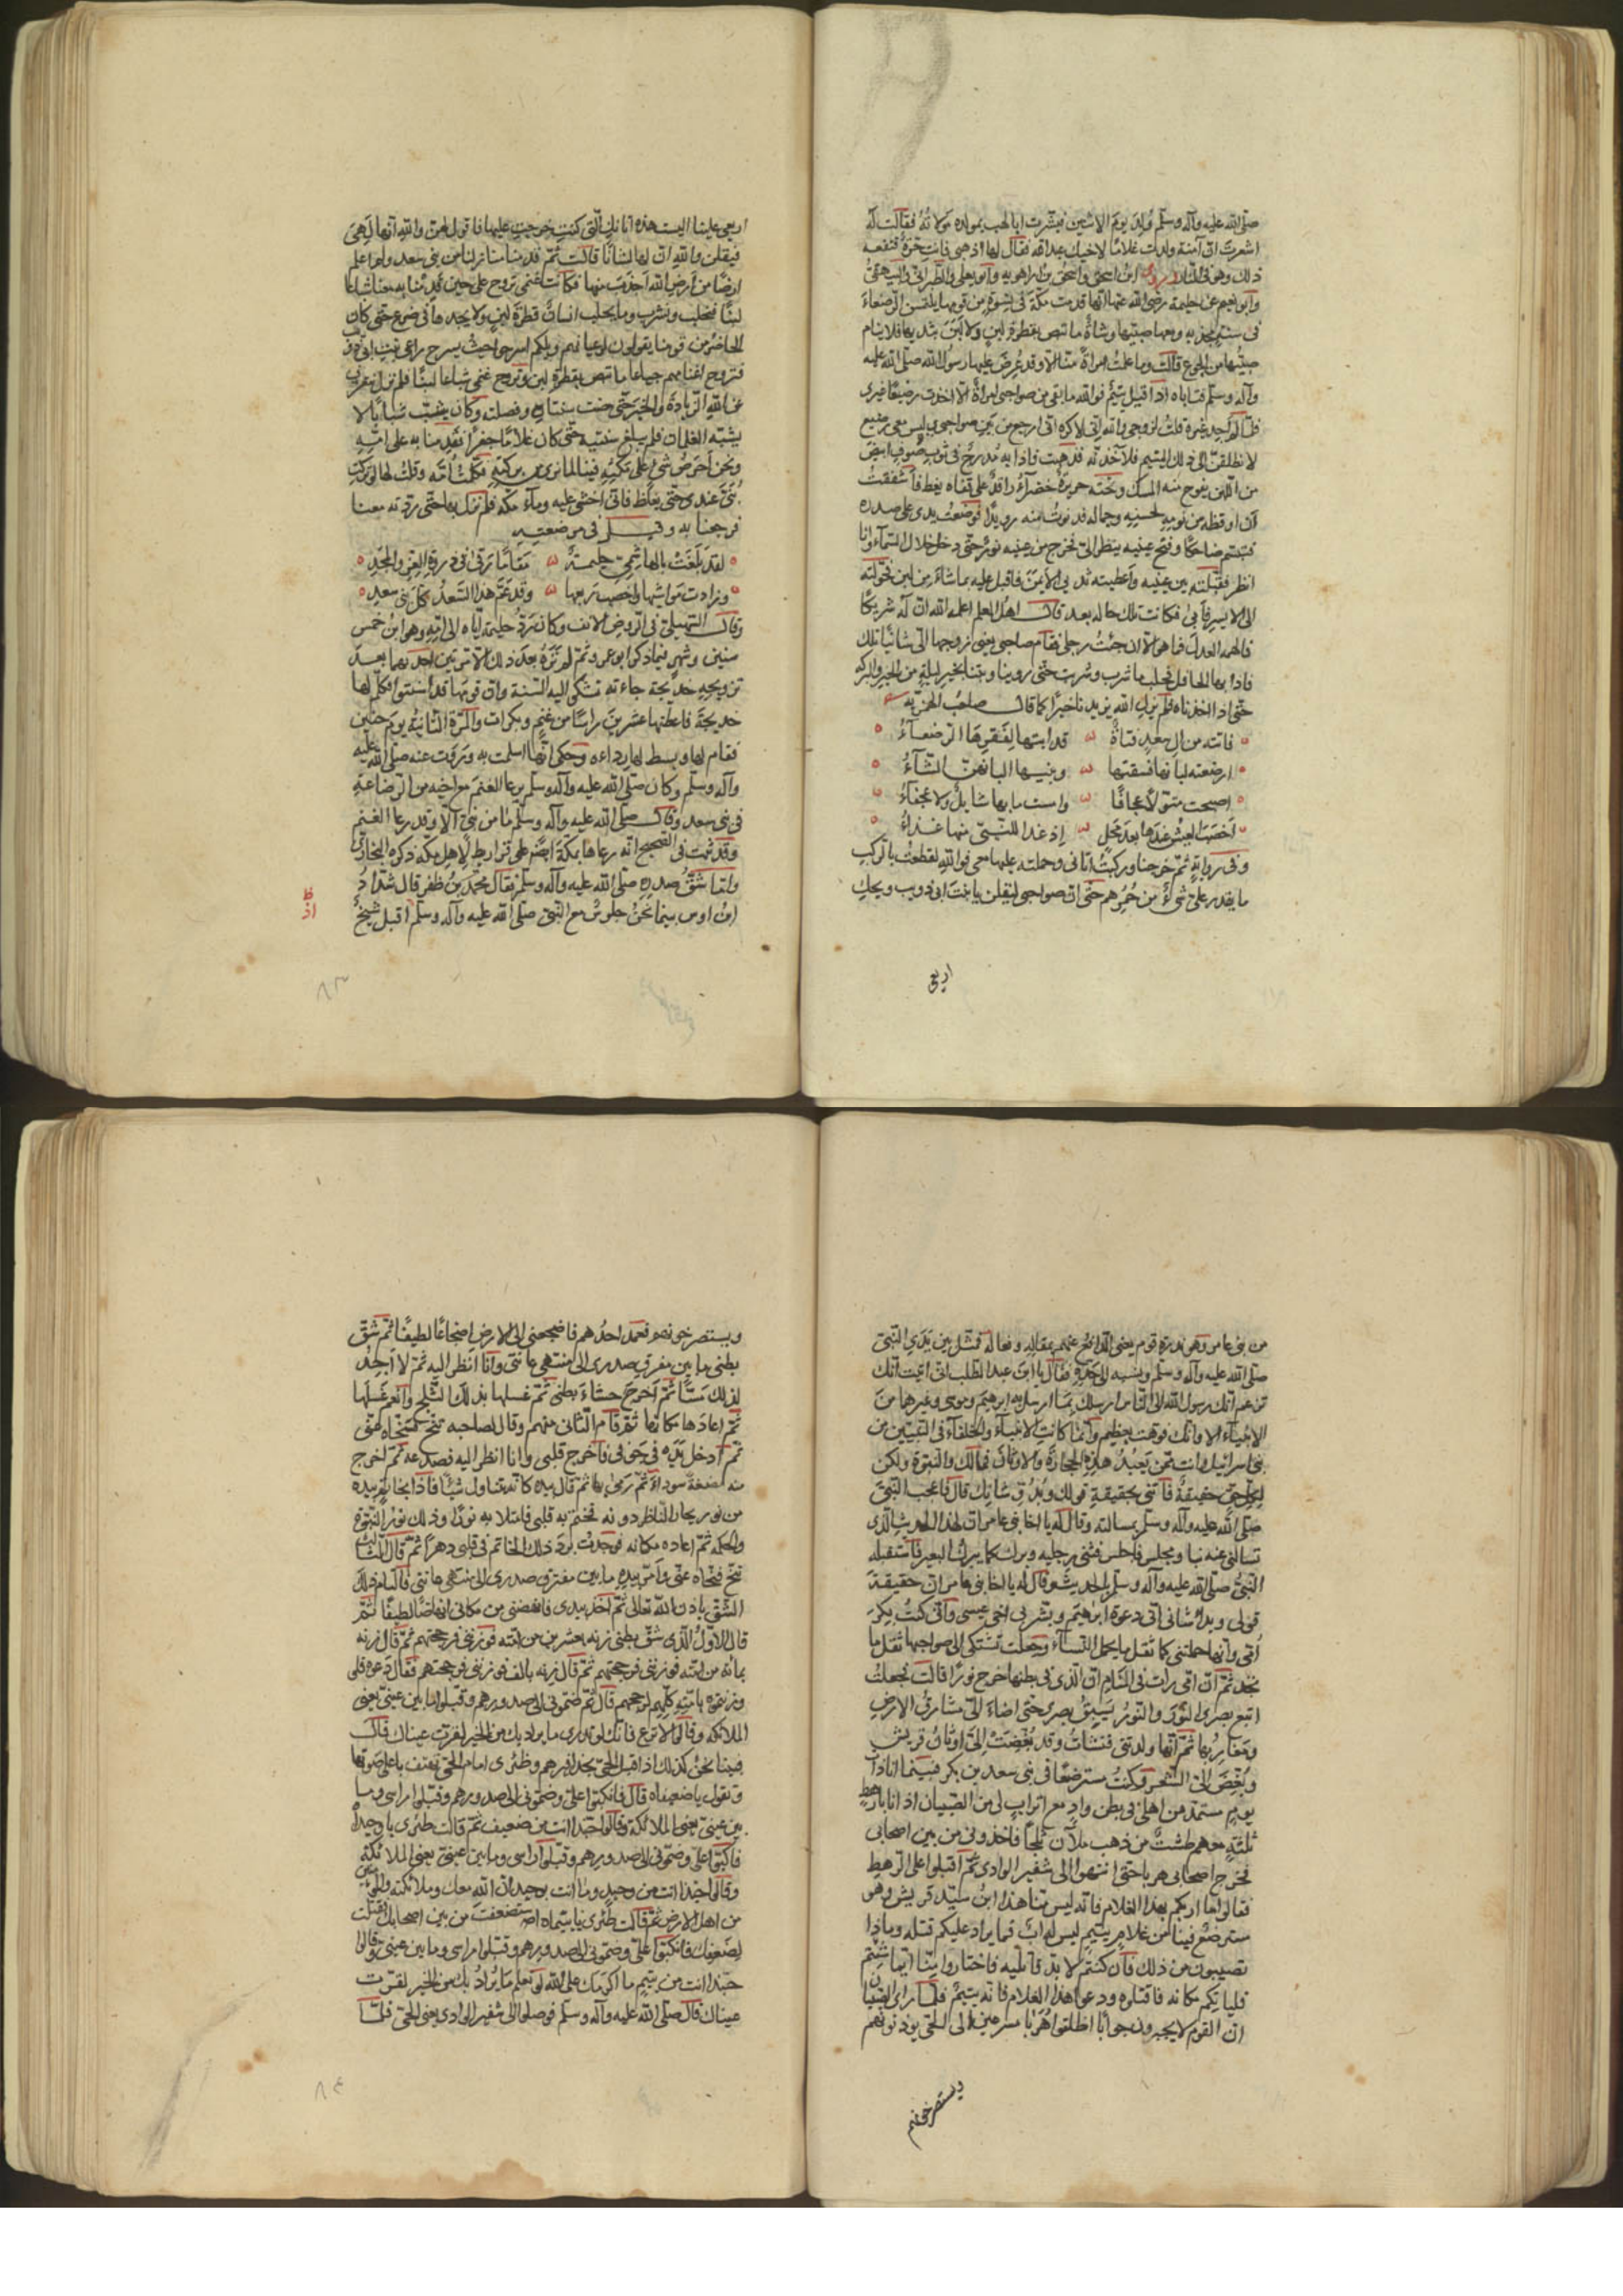 صلى الله عليه وآله وسلم وُلِدَ يومَ الاثنين فبشّرت ابا لهب بمولده مَولاتُهُ فقالت له
اشعرتَ انّ آمنة ولدت غلامًا لاخيك عبدالله فقال لها اذهبى فانتِ حُرّةٌ فنفعه
ذلك وهو فى النّار وروى ابنُ اسحق واسحق بن راهويه وابو يعلى والطّبرانى والبيهقىّ
وابو نعيم عن حليمة رضى الله عنها انّها قدمت مكّة فى نسوةٍ من قومها يلتمسن الرّضعاءَ
فى سنةٍ مجدبه ومعها صبيّها وشاةٌ ما تبض بقطرةِ لبنٍ ولا لَبَنَ بثديها فلا ينام
صبيّها من الجوع قالت وما علمتُ امراةً منّا الّا وقد عُرِضَ عليها رسول الله صلّى الله عليه
وآله وسلّم فتاباه اذا قيل يتيمٌ فوالله ما بقى من صواحبى امراةٌ الّا اخذت رضيعًا غيرى
فلمّا لم اجد غيره قلتُ لزوجى والله انّى لاكره انى ارجع من بين صواحبى ليس معى رضيع
لانطلقنّ الى ذلك اليتيم فلآخذنّه فذهبت فاذا به مُدرجٌ فى ثوبِ صوفٍ ابيضَ
من اللّبن يفوح منه المسك وتحته حريرةٌ خضرآءُ راقدٌ على قفاه يغط فاشفقتُ
ان اوقظه من نومهِ لحسنِهِ وجماله فدنوتُ منه رويدًا فوضعتُ يدى على صدره
فتبسّم ضاحكًا وفتح عينيه ينظر الىّ فخرج من عينيه نورٌ حتّى دخل خلال السّمآء وانا
انظر فقبّلته بين عينيه واعطيته ثدييَ الايمنَ فاقبل عليه بماشآءَ من لبن فحوّلته
الى الايسر فابى فكانت تلك حاله بعد قال اهلُ العلم اعلمه الله انّ له شريكًا
فالهمه العدلَ فما هو الّا ان جئتُ رحلى فقام صاحبى يعنى زوجها الى شاتنا تلك
فاذا بها لحافل فحلبها شرب وشربت حتّى روينا وبتنا بخيرِ ليلةٍ من الخير والبركه
حتّى اذا اخذناه فلم يزل الله يزيدنا خيرًا كما قال صاحبُ الهمزيّه
فاتته من آلِ سعدٍ فتاةٌ قد ابتها لفَقرِهَا الرّضعآءُ
ارضعته لبانها فسقتها وبنيها البانهنّ الشّآءُ
اصبحت شوّلاً عجافًا وامست ما بها شايلٌ ولا عجفآءُ
اخصب العيش عندها بعد مَحلٍ اذ غدا للنّبىّ منها غذآءُ
وفى روايةٍ ثمّ خرجنا وركبتُ اتانى وحملته عليها معى فوالله لقطعتُ بالركب
ما يقدر علىّ شىءٌ من حُمُرِهم حتّى انّ صواحبى ليقلن يا بنت ابى ذويب ويحكِ
اربعى
اربعى علينا اليست هذه اتانكِ الّتى كنتِ خرجتِ عليها فاقول لهنّ والله انّها لَهِىَ
فيقلن والله انّ لها لشانًا قالت ثمّ قدمنا منازلنا من بنى سعد ولا اعلم
ارضًا من ارضِ الله اَجذَبَ منها فكانت غنمى تروح علىّ حين قدمنا به معنا شباعًا
لبنًا فنحلب ونشرب وما يحلب انسانٌ قطرةَ لبنٍ ولا يجدها فى ضرعٍ حتّى كان
الحاضرُ من قومنا يقولون لرعيانهم ويلكم اسرحوا حيث يسرح راعى بنت ابى ذويب
فتروح اغنامهم جياعًا ما تبض بقطرة لبن وتروح غنمى شباعًا لبنًا فلم نزل نعرف
من الله الزّيادةَ والخيرَ حتّى مضت سنتاه وفصلته وكان يشبّ شبابًا لا
يشبّه الغلمان فلم يبلغ سنتيه حتّى كان غلامًا جفرًا فقدمنا به على امّه
ونحن اَحرصُ شىءٍ على مكثِهِ فينا لما نرى من بركتهِ فكلّمتُ اُمّه وقلتُ لها لو تركتِ
بُنَىَّ عندى حتّى يغلظ فانّى اخشى عليه وباءَ مكّه فلم نزل بها حتّى ردّته معنا
فرجعنا به وقيل فى مرضعته
لقد بَلَغَتْ بالهاشِمِىّ حليمةٌ مقامًا رَقى فى ذروةِ العِزّ والمجدِ
وزادت مَواشيها واخصبَ ربعها وقد عَمَّ هذا السّعدُ كلَّ بنى سعدِ
وقال السّهيلىّ فى الرّوض الانف وكان رَدُّ حليمة ايّاه الى امّهِ وهو ابنُ خمس
سنين وشهرٍ فيما ذكر ابو عمرو ثمّ لم تَرَهُ بعدَ ذلك الّا مرّتين احدهما بعدَ
تزويجهِ خديجة جاءته تشكو اليه السّنة وانّ قومَها قد اسنتوا فكلّم لها
خديجةَ فاعطتها عشرين راسًا من غنمٍ وبكرات والمرّة الثّانيهُ يومَ حنين
فقام لها وبسط لها رداءه وحكى انّها اسلمت به ورَوَت عنه صلّى الله عليه
وآله وسلّم وكان صلّى الله عليه وآله وسلّم يرعا الغنمَ مع اخيه من الرّضاعةِ
فى بنى سعد وقال صلّى الله عليه وآله وسلّم ما من نبىّ الّا وقد رعا الغنم
وقد ثبت فى الصّحيح انّه رعاها بمكّة ايضًا على قراريط لاهل مكّه ذكره البخارىّ
وامّا شَقُّ صدرِهِ صلّى الله عليه وآله وسلّم فقال محمّد بنُ ظفر قال شدّادُ
ابنُ اوس بينما نحنُ جلوسٌ مع النّبىّ صلّى الله عليه وآله وسلّم اقبل شيخٌ
ظ
اذ
٨٣
من بنى عامر وهو مدرةُ قومِهِ يعنى المدافع عنهم بمقالِهِ وفعاله فمثل بين يَدَىِ النّبىّ
صلّى الله عليه وآله وسلّم ونسبه الى جدّهِ فقال يا ابنَ عبد المطّلب انّى انبئت انّك
تزعم انّك رسول الله الى النّاس ارسلك بما ارسل به ابرهيم وموسى وغيرهما من
الانبيآء الا وانّك فوّهت بعظيم وانّما كانت الانبيآءُ والخلفآء فى النّبيّين من
بنى اسرائيل وانت ممّن يَعبُدُ هذه الحجارَةَ والاوثانَ فما لك والنّبوّة ولكن
لكلِّ حقٍّ حقيقةٌ فاتنى بحقيقةِ قولك وبُدُوّ شانِك قال فاعجب النّبىَّ
صلّى الله عليه وآله وسلّم بمسالته وقال له يا اخا بنى عامر انّ لهذا الحديث الّذى
تسالنى عنه نبا ومجلس فاجلس فثنى رجليه وبرك كما يبرك البعير فاستقبله
النّبىُّ صلّى الله عليه وآله وسلّم بالحديث وقال له يا اخا بنى عامر انّ حقيقةَ
قولى وبدأ شانى انّى دعوة ابرٰهيم وبشرى اخى عيسى وانّى كنتُ بِكرَ
اُمّى وانّها حملتنى كما ثقل ما يحمل النّسآءُ وجعلت تشتكى الى صواحبها ثِقَل ما
تجد ثمّ انّ امّى رات فى المنام انّ الّذى فى بطنها خرج نورًا قالت فجعلتُ
اتبع بصرىَ النّورَ والنّورُ يَسبِقُ بصرى حتّى اضاءَ الىّ مشارقُ الارضِ
ومغاربُها ثمّ انّها ولدتنى فنشاتُ وقد بُغِّضَتْ الىّ اوثانُ قريشٍ
وبُغِّضَ الىّ الشّعر فكنتُ مسترضعًا فى بنى سعد بن بكر فبينما انا ذات
يومٍ منتبذ من اهلى فى بطنِ وادٍ مع اترابٍ لى من الصّبيان اذ انا برهط
ثلثةٍ معهم طشتٌ من ذهب ملآن ثلجًا فاخذونى من بين اصحابى
فخرج اصحابى هربا حتّى انتهوا الى شفير الوادى ثمّ اقبلوا على الرّهط
فقالوا ما اربكم بهذا الغلام فانّه ليس منّا هذا ابنُ سيّد قريش وهو
مسترضعٌ فينا من غلامٍ يتيمٍ ليس له ابٌ فما يردّ عليكم قتله وماذا
تصيبون من ذلك فان كنتم لا بدّ قاتليه فاختاروا منّا ايّنا شئتم
فلياتكم مكانه فاقتلوه ودعوا هذا الغلام فانّه يتيمٌ فلمّا راى الصّبيان
انّ القوم لا يجيرون جوابًا انطلقوا هَرَبا مسرعين الى الحىّ يؤذنونهم
ويستصرخونهم
ويستصرخونهم فعمد احدُهم فاضجعنى الى الارضِ اضجاعًا لطيفًا ثمّ شَقَّ
بطنى ما بين مفرقِ صدرى الى منتهى عانتى وانا انظر اليه ثمّ لا اجدُ
لذلك مَسًّا ثمّ اخرجَ حشاءَ بطنى ثمّ غسلها بذلك الثّلج وانعم غسلَها
ثمّ اعادَها مكانها ثمّ قام الثّانى منهم وقال لصاحبه تنحّ فنحّاه عنّى
ثمّ ادخل يَدَه فى جوفى فاخرج قلبى وانا انظر اليه فصدعه ثمّ اخرج
منه مضغةً سوداءَ ثمّ رَمى بها ثمّ قال بيده كانّه يتناول شيئًا فاذا بخاتمٍ بيده
من نورٍ يحار النّاظر دونه فختم به قلبى فامتلا به نورًا وذلك نورُ النّبوّةِ
والحكمه ثمّ اعاده مكانه فوجدتُ بردَ ذلك الخاتم فى قلبى دهرًا ثمّ قال الثّالثُ
تنحّ فنحّاه عنّى وامرّ بيدِهِ ما بين مفترق صدرى الى منتهى عانتى فالتام ذلك
الشّقّ باذن الله تعالى ثمّ اخذ بيدى فانهضنى من مكانى انهاضًا لطيفًا ثمّ
قال الاوّل الّذى شقّ بطنى زِنه بعشرين من امّته فوزننى فرجحتهم ثمّ قال زِنه
بمائة من امّته فوزننى فرجحتهم ثمّ قال زِنه بالف فوزننى فرجحتهم فقال دَعوه فلو
وزنتموه بامّتِهِ كلّهم لرجحهم قال ثمّ ضمّونى الى صدورهم وقبّلوا ما بين عينىّ يعنى
الملائكه وقالوا لا ترع فانّك لو تدرى ما يراد بك من الخير لقرّت عيناك قال
فبينا نحنُ كذلك اذ اقبل الحىّ بحذافيرهم وظئرى امام الحىّ تهتف باعلى صوتها
وتقول يا ضعيفاه قال فانكبّوا علىّ وضمّونى الى صدورهم وقبّلوا راسى وما
بين عينىّ يعنى الملائكة وقالوا حبّذا انت من ضعيف ثمّ قالت ظئرى يا وحيداهُ
فاكبّوا علىّ وضمّونى الى صدورهم وقبّلوا راسى وما بين عينىّ يعنى الملائكةِ
وقالوا حبّذا انت من وحيدٍ وما انت بوحيد انّ الله معك وملائكته والمؤمنين
من اهل الارض ثمّ قالت ظئرى يا يتيماه استضعفت من بين اصحابك فقتلت
لضعفك فانكبّوا علىّ وضمّونى الى صدورهم وقبّلوا راسى وما بين عينىّ وقالوا
حبّذا انت من يتيمٍ ما اكرمك على الله لو تعلم ما يُرادُ بك من الخير لقرّت
عيناك قال صلّى الله عليه وآله وسلّم فوصلوا الى شفير الوادى يعنى الحىّ فلمّا
٨٤